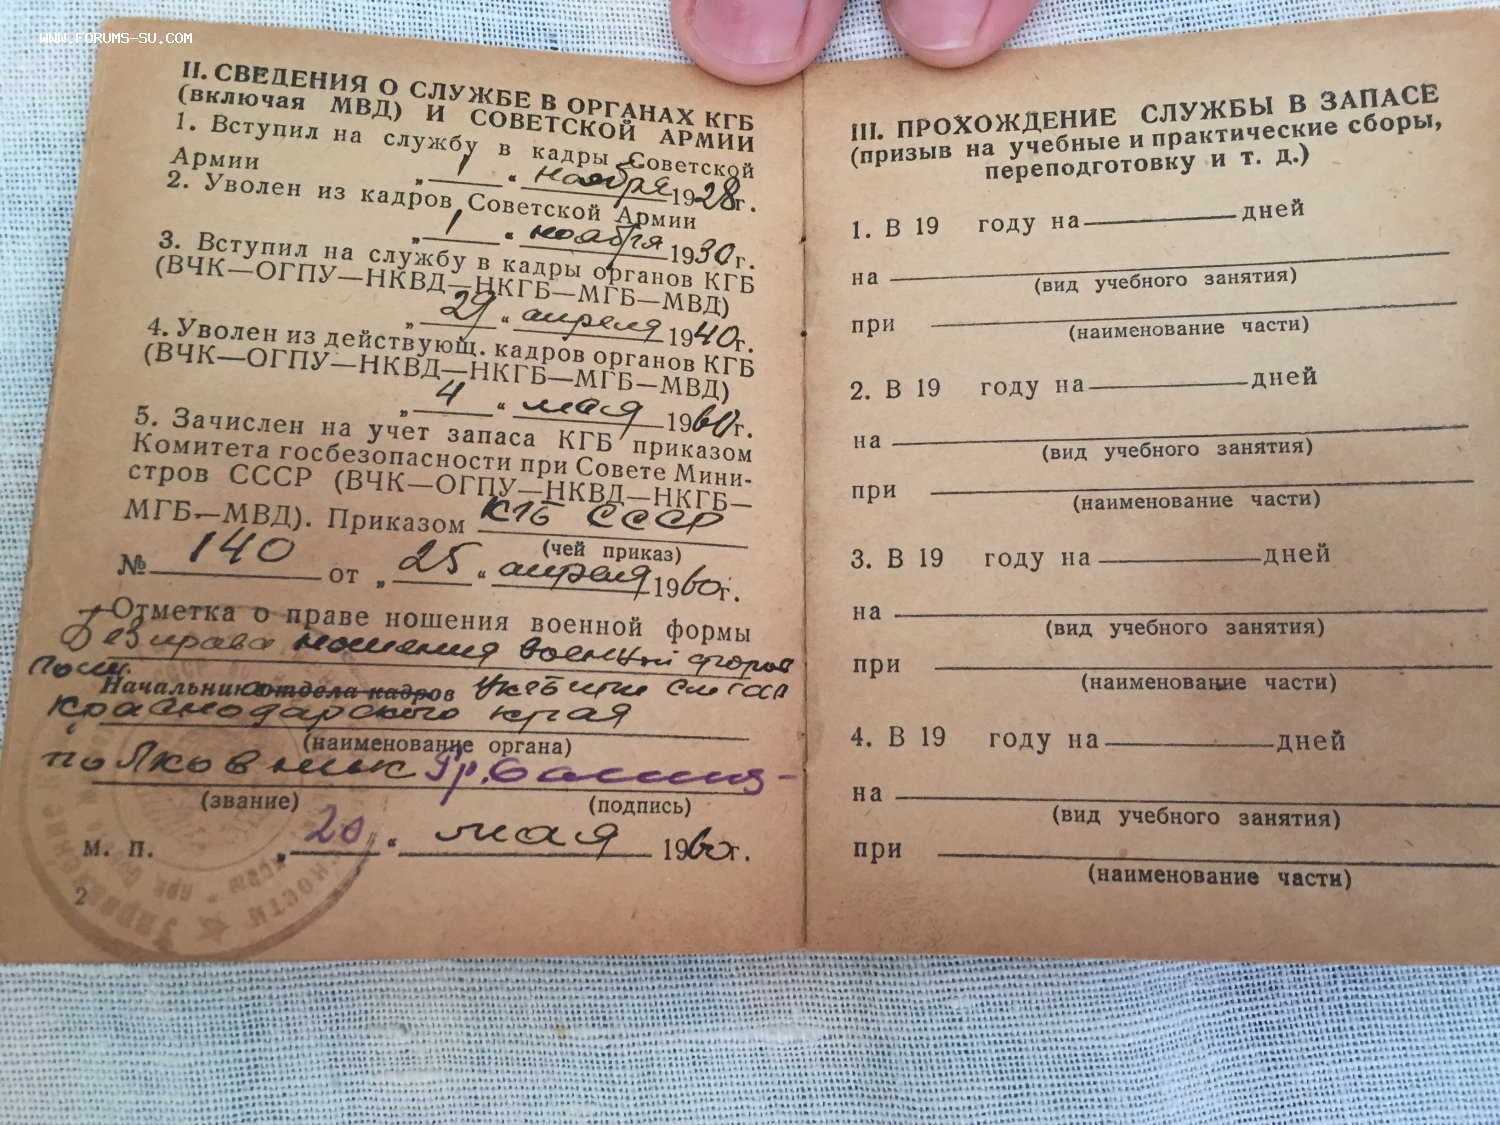 WWW.FORUMS-SU.COM
II. СВЕДЕНИЯ О СЛУЖБЕ В ОРГАНАХ КГБ
(включая МВД) И СОВЕТСКОЙ АРМИИ
1. Вступил на службу в кадры Советской
Армии „ 1 “ ноября 1928г.
2. Уволен из кадров Советской Армии
„ 1 “ ноября 1930г.
3. Вступил на службу в кадры органов КГБ
(ВЧК—ОГПУ—НКВД—НКГБ—МГБ—МВД)
„ 29 “ апреля 1940г.
4. Уволен из действующ. кадров органов КГБ
(ВЧК—ОГПУ—НКВД—НКГБ—МГБ—МВД)
„ 4 “ мая 1960г.
5. Зачислен на учет запаса КГБ приказом
Комитета госбезопасности при Совете Мини-
стров СССР (ВЧК—ОГПУ—НКВД—НКГБ—
МГБ—МВД). Приказом КГБ СССР
(чей приказ)
№ 140 от „ 25 “ апреля 1960г.
Отметка о праве ношения военной формы
Без права ношения военной формы
Начальник отдела кадров
Краснодарского края
(наименование органа)
полковник
(звание) (подпись)
м. п. „ 20 “ мая 1960г.
2
III. ПРОХОЖДЕНИЕ СЛУЖБЫ В ЗАПАСЕ
(призыв на учебные и практические сборы,
переподготовку и т. д.)
1. В 19 году на дней
на
(вид учебного занятия)
при
(наименование части)
2. В 19 году на дней
на
(вид учебного занятия)
при
(наименование части)
3. В 19 году на дней
на
(вид учебного занятия)
при
(наименование части)
4. В 19 году на дней
на
(вид учебного занятия)
при
(наименование части)